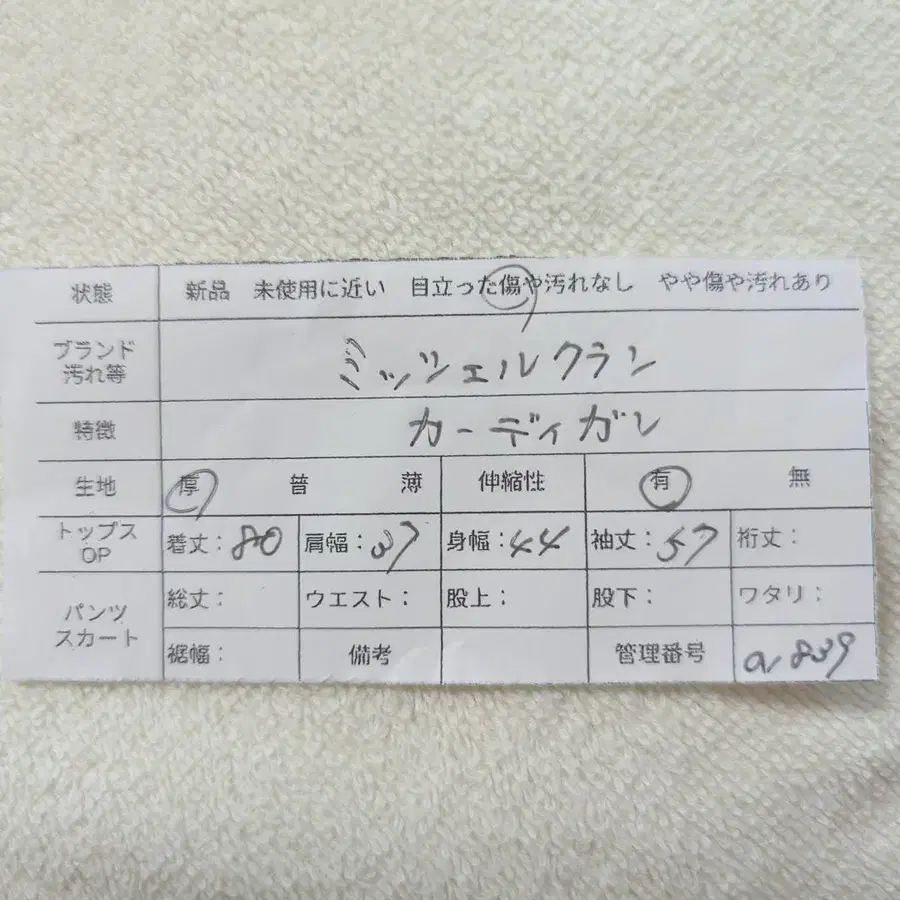 状態 新品 未使用に近い 目立った傷や汚れなし やや傷や汚れあり
ブランド
汚れ等 ミッシェルクラン
特徴 カーディガン
生地 厚 普 薄 伸縮性 有 無
トップス
OP 着丈:80 肩幅:37 身幅:44 袖丈:57 裄丈:
パンツ
スカート 総丈: ウエスト: 股上: 股下: ワタリ:
裾幅: 備考 管理番号 a839